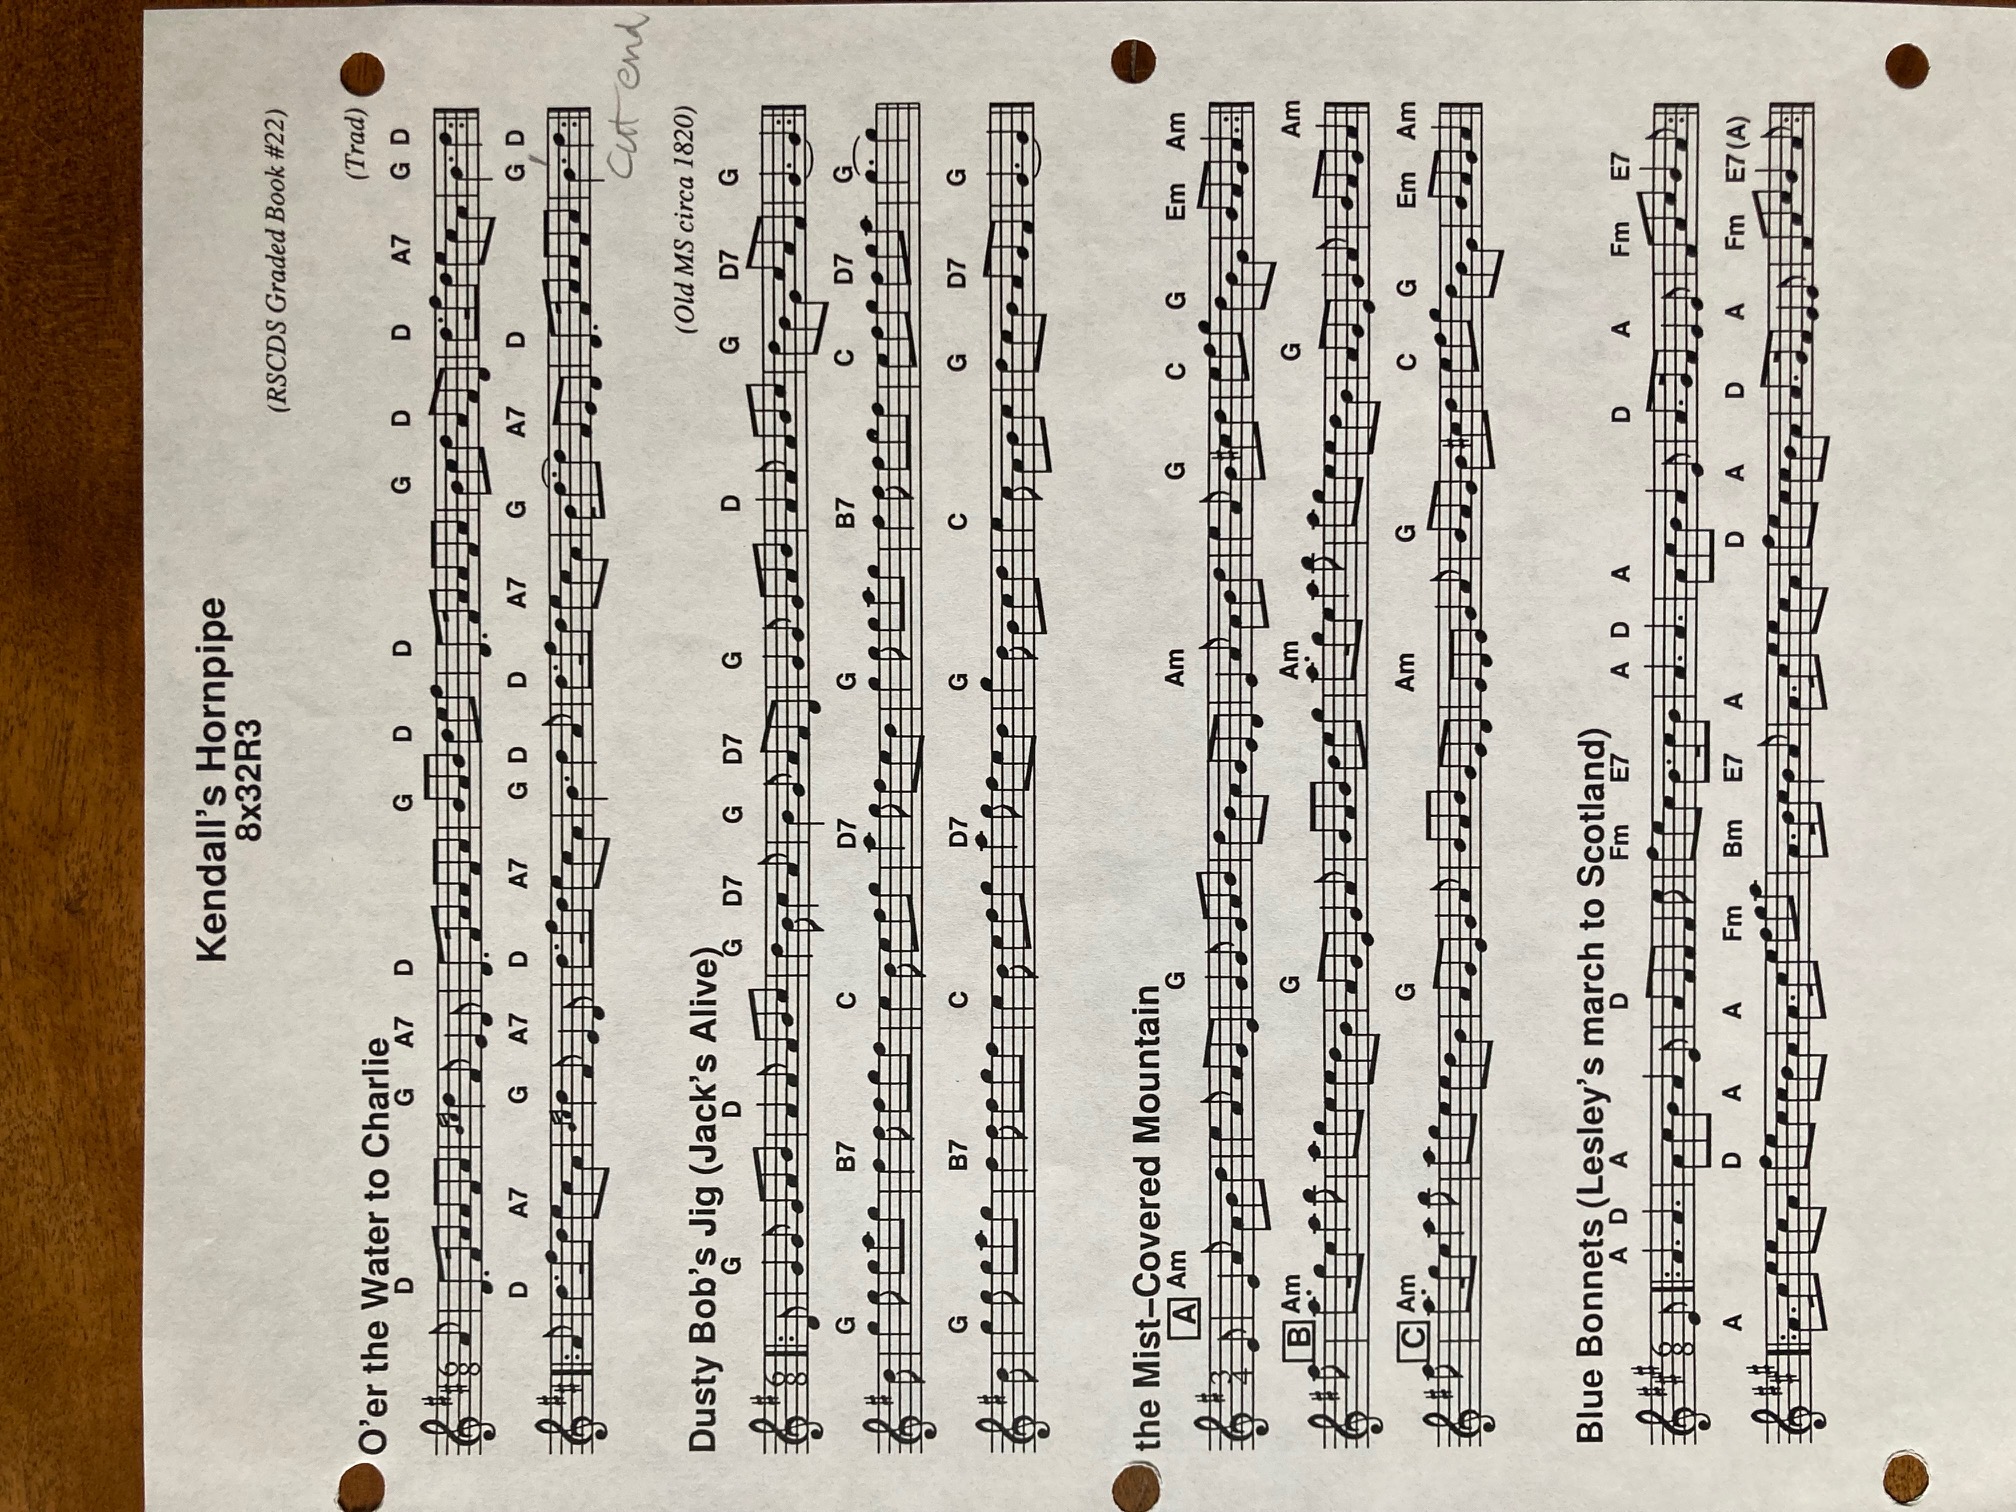 Kendall's Hornpipe
8x32R3
(RSCDS Graded Book #22)
O'er the Water to Charlie (Trad)
D G A7 D G D D G D D A7 G D
6 8
D A7 G A7 D A7 G D D A7 G A7 D G D
cut end
Dusty Bob's Jig (Jack's Alive) (Old MS circa 1820)
G D G D7 G D7 G D G D7 G
6 8
G B7 C D7 G B7 C D7 G
G B7 C D7 G C G D7 G
the Mist-Covered Mountain
A Am G Am G C G Em Am
3 4
B Am G Am G Am
C Am G Am G C G Em Am
Blue Bonnets (Lesley's march to Scotland)
A D A D Fm E7 A D A D A Fm E7
6 8
A D A A Fm Bm E7 A D A D A Fm E7(A)